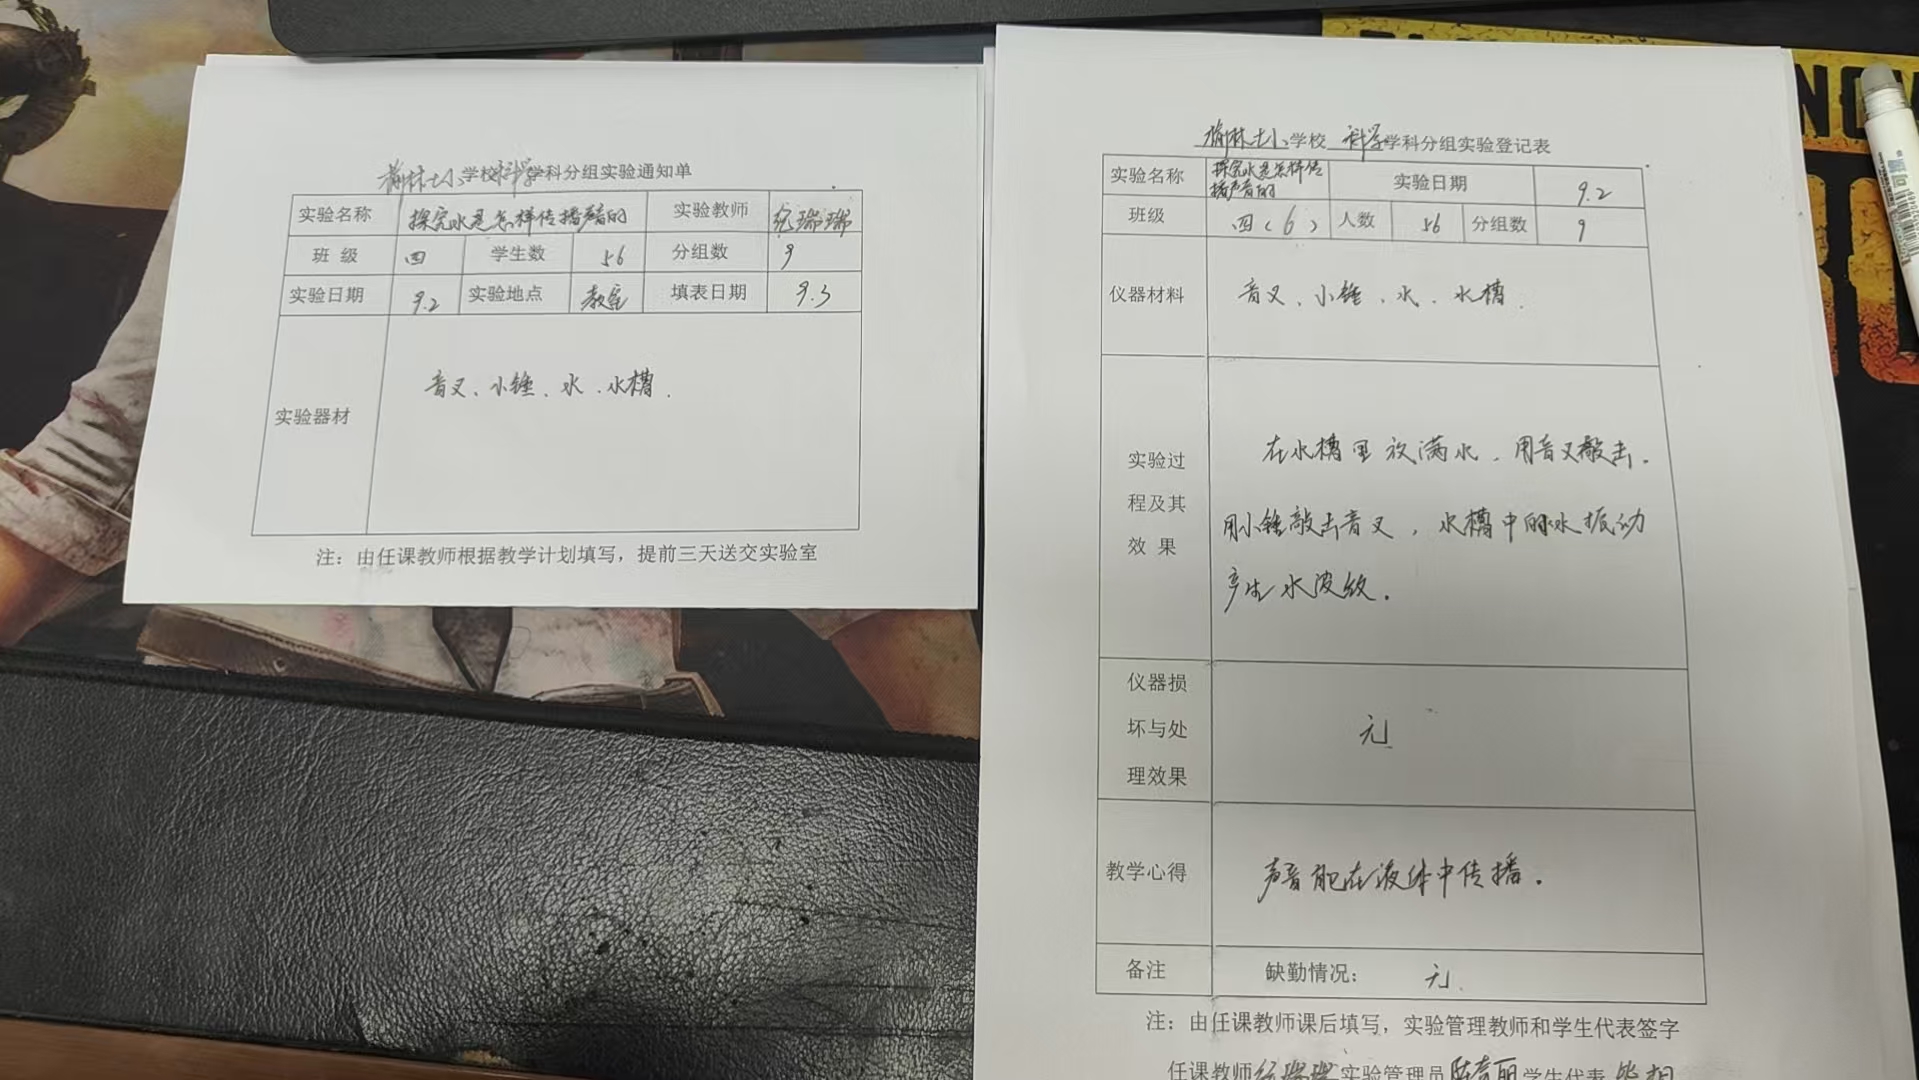 学校科学学科分组实验通知单
实验名称 探究水是怎样传播声音的 实验教师 纪瑞瑞
班 级 四 学生数 56 分组数 9
实验日期 9.2 实验地点 教室 填表日期 9.3
实验器材 音叉、小锤、水、水槽.
注：由任课教师根据教学计划填写，提前三天送交实验室
学校 科学学科分组实验登记表
实验名称 探究水是怎样传播声音的 实验日期 9.2
班级 四（6） 人数 56 分组数 9
仪器材料 音叉、小锤、水、水槽.
实验过程及其效果
在水槽里放满水，用音叉敲击.
用小锤敲击音叉，水槽中的水振动
产生水波纹.
仪器损坏与处理效果 无
教学心得 声音能在液体中传播.
备注 缺勤情况： 无.
注：由任课教师课后填写，实验管理教师和学生代表签字
任课教师 实验管理员 学生代表